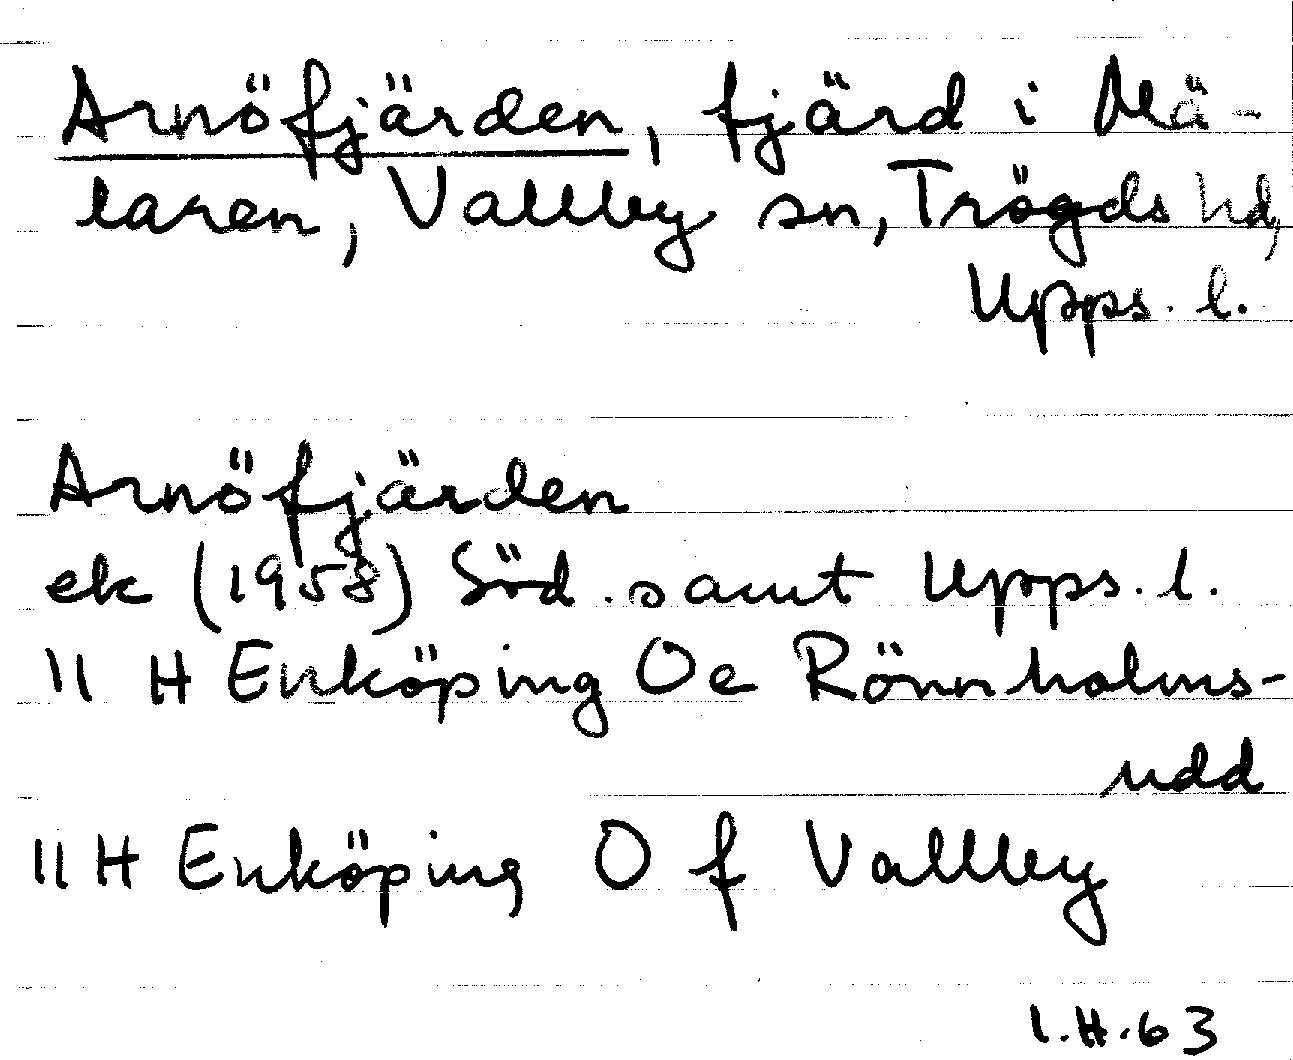 Arnöfjärden, fjärd i Mä-
laren, Vallby sn, Trögds hd,
Upps. l.
Arnöfjärden
ek (1958) Söd. samt Upps. l.
11 H Enköping Oe Rönnholms-
udd
11 H Enköping O f Vallby
I.H.63